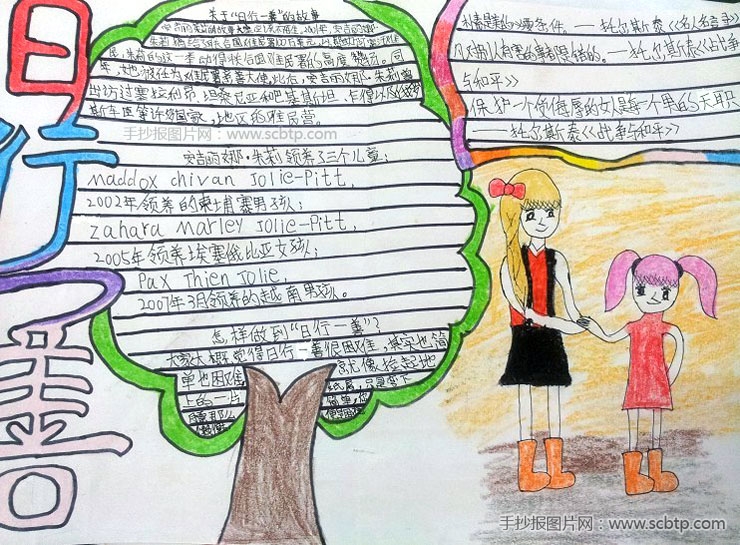 日行一善
关于"日行一善"的故事
安吉丽娜
2001年,安吉丽娜·
朱莉捐给了联合国难民署100万美元,
民,朱莉的这一举动得到联合国难民署的高度赞扬。同
年,她被任为难民署亲善大使。此后,安吉丽娜·朱莉曾
出访过塞拉利昂、坦桑尼亚和巴基斯坦、
斯车臣等许多国家、地区的难民营。
安吉丽娜·朱莉领养了三个儿童:
Maddox chivan Jolie-Pitt,
2002年领养的柬埔寨男孩;
Zahara Marley Jolie-Pitt,
2005年领养埃塞俄比亚女孩;
Pax Thien Jolie,
2007年3月领养的越南男孩。
怎样做到"日行一善"?
大家大概觉得日行一善很困难,其实也简
单也困难 就像捡起地
上的一片
朴素是美的必要条件。——托尔斯泰《名人名言录》
凡对别人有害的事都是错的。——托尔斯泰《战争
与和平》
保护一个受侮辱的女人是每个男的天职
——托尔斯泰《战争与和平》
手抄报图片网:www.scbtp.com
手抄报图片网:www.scbtp.com